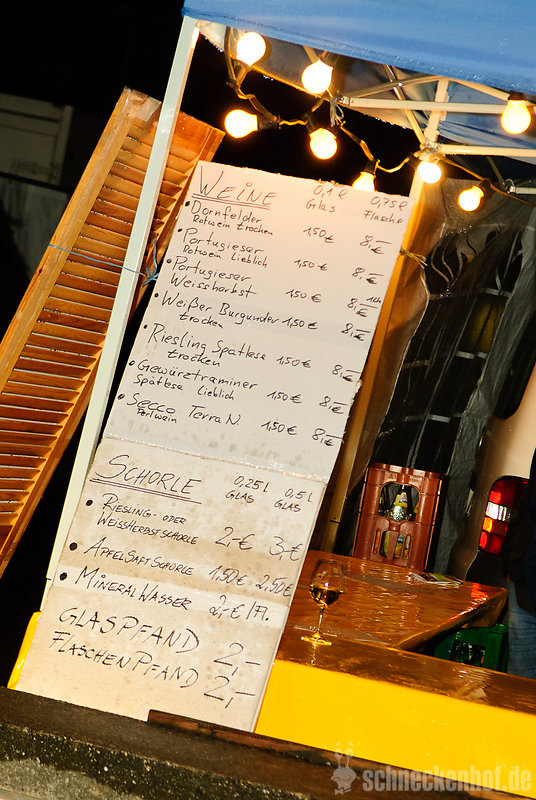 WEINE 0,1 l 0,75 l
Glas Flasche
• Dornfelder
Rotwein trocken 1,50 € 8,-€
• Portugieser
Rotwein Lieblich 1,50 € 8,-€
• Portugieser
Weissherbst 1,50 € 8,-€
• Weißer Burgunder 1,50 € 8,-€
trocken
• Riesling Spätlese 1,50 € 8,-€
trocken
• Gewürztraminer 1,50 € 8,-€
Spätlese Lieblich
• Secco Terra N 1,50 € 8,-€
Perlwein
SCHORLE 0,25 L 0,5 L
GLAS GLAS
• RIESLING- ODER
WEISSHERBSTSCHORLE 2,-€ 3,-€
• APFELSAFTSCHORLE 1,50€ 2,50€
• MINERALWASSER 2,-€/Fl.
GLASPFAND 2,-
FLASCHENPFAND 2,-
schneckenhof.de